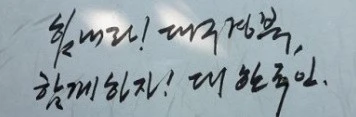 힘내라! 대구경북,
함께하자! 대한국인.